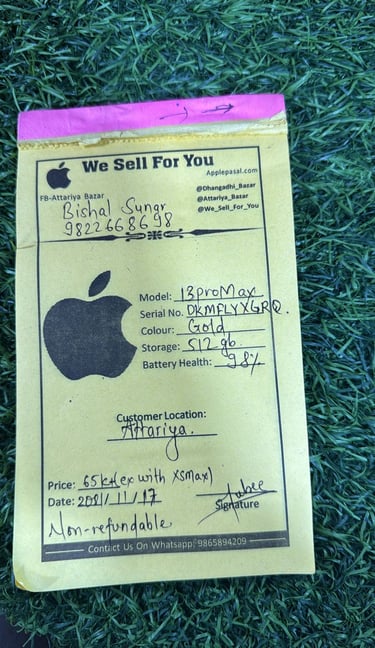 We Sell For You
Applepasal.com
FB-Attariya Bazar
@Dhangadhi_Bazar
@Attariya_Bazar
@We_Sell_For_You
Bishal Sunar
9822668698
Model: 13 pro Max
Serial No. DKMFLYXGRQ.
Colour: Gold
Storage: 512 gb.
Battery Health: 98%
Customer Location:
Attariya.
Price: 65k+(ex with XSMax)
Date: 2081/11/17
Signature
Non-refundable
Contact Us On Whatsapp: 9865894209